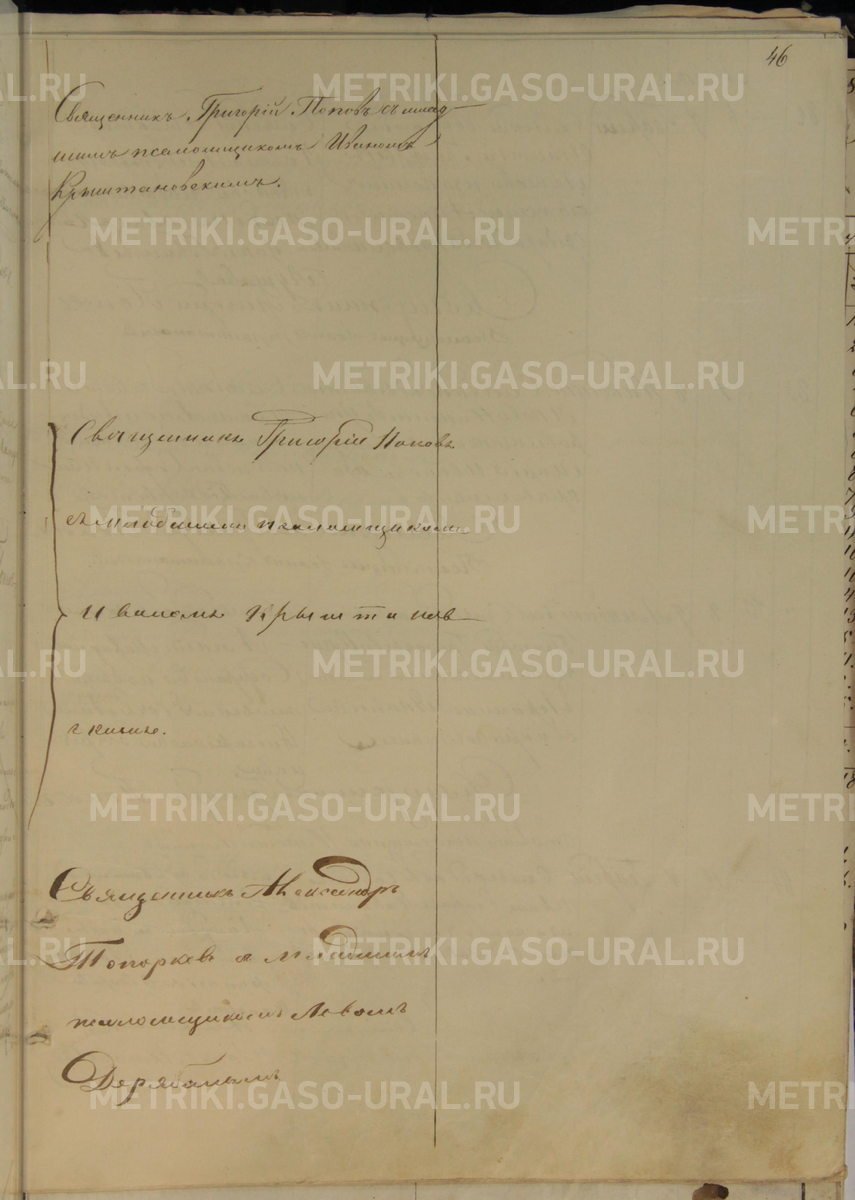 46
Священникъ Григорій Поповъ съ млад-
шимъ псаломщикомъ Иваномъ
Крыштановскимъ.
Священникъ Григорій Поповъ
съ младшимъ псаломщикомъ
Иваномъ Крыштанов-
скимъ.
Священникъ Александръ
Топорковъ съ младшимъ
псаломщикомъ Львомъ
Дерябинымъ
METRIKI.GASO-URAL.RU